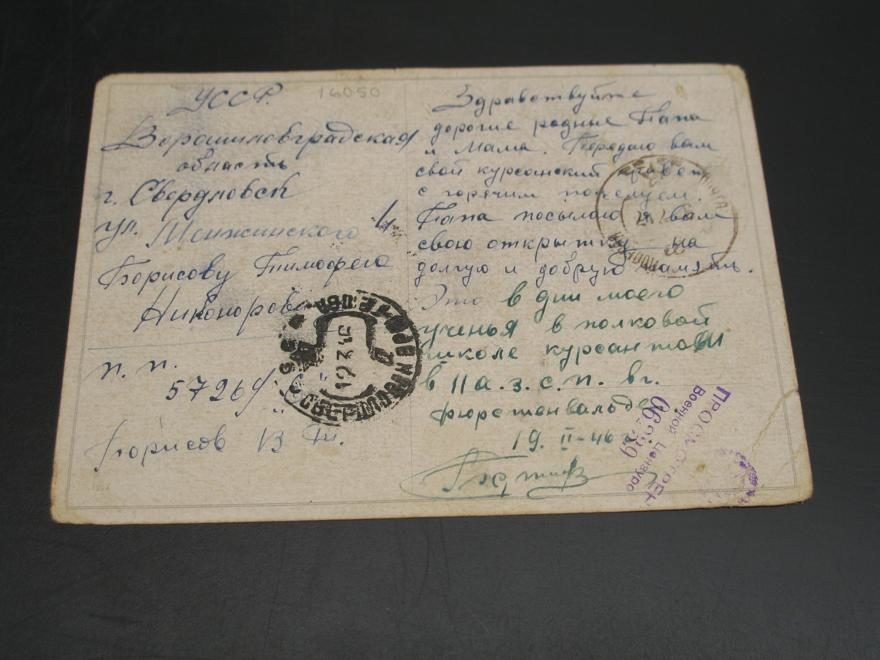 УССР.
16050
Ворошиловградская
область
г. Свердловск
ул. Менжинского 4
Борисову Тимофею
Никоноров
п. п.
57264
Борисов В Т.
Здравствуйте
дорогие родные Папа
и Мама. Передаю вам
свой курсанский привет
с горячим поцелуем.
Папа посылаю я вам
свою открытку на
долгую и добрую память.
Это в дни моего
ученья в полковой
школе курсантом
в 11 а.з.с.п. вг.
фюрстенвальде
19. II-46 г.
СВЕРДЛОВСК
12 3 46
ПРОСМОТРЕНО
Военной Цензуро